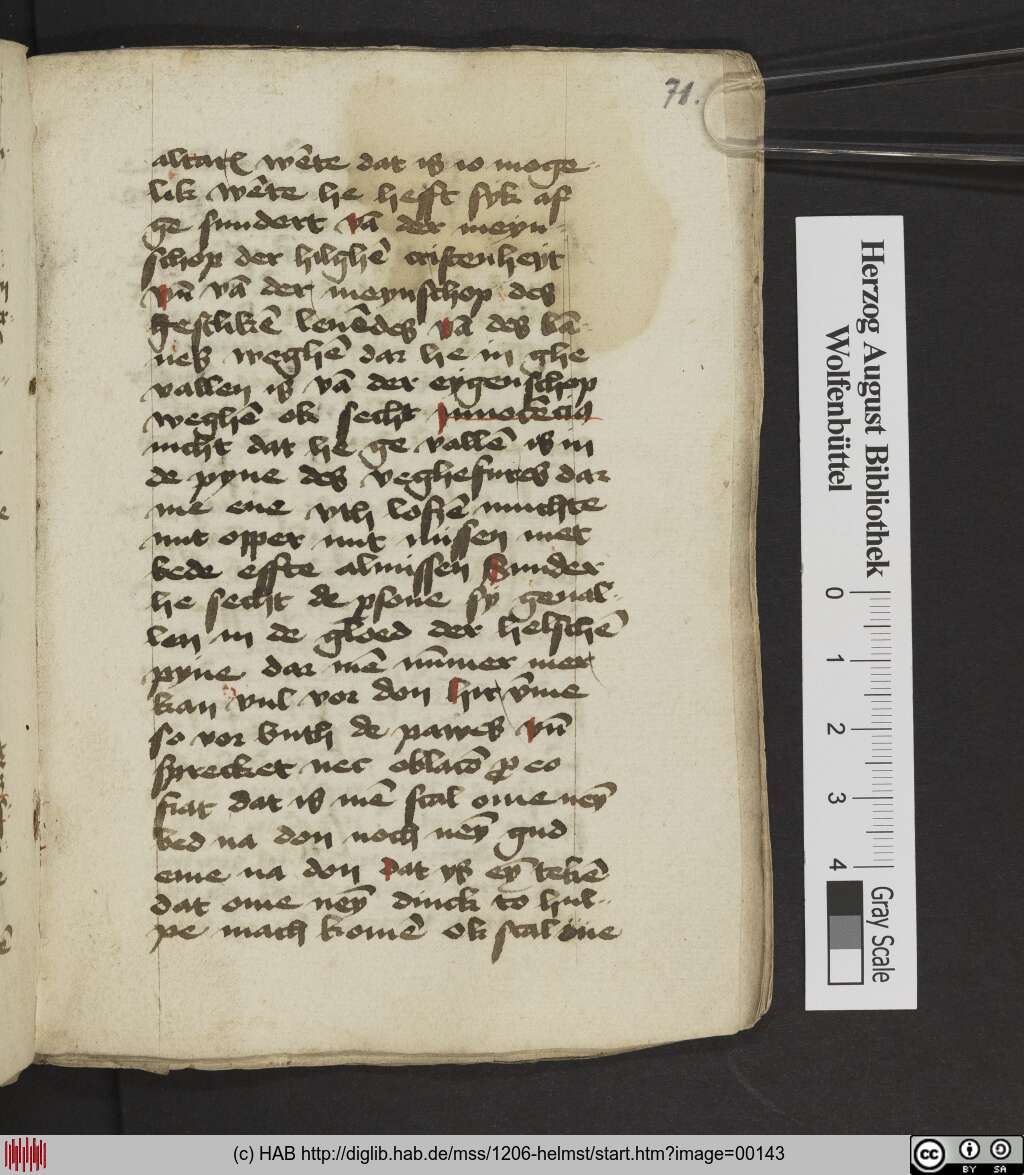 71.
altarꝭ wēte dat is io moge-
lik wēte he hefft syk af
ge sundert vā der meyn-
schop der hilghē cristenheyt
vn̄ vā der meynschop des
gestlikē leuēdes vā des bā-
nes weghē dar he in ghe
vallen is vā der eygenschop
weghē ok secht innocēcius
nicht dat he ge vallē is in
de pyne des veghefures dar
me ene vth losē muchte
mit opper mit missen met
bede effte almissen Sunder
he secht de ꝑsone sy geual-
len in de gloed der helschē
pyne dar mē nūmer mer
kan vul vor don hir v̄me
so vor buth de pawes vn̄
sprecket nec oblacō ꝓ eo
fiat dat is mē scal ome neȳ
bed na don noch neȳ gud
eme na don Dat ys eȳ tekē
dat ome neȳ dinck to hul-
pe mach komē ok scal ōne
Herzog August Bibliothek
Wolfenbüttel
0 1 2 3 4
Gray Scale
(c) HAB http://diglib.hab.de/mss/1206-helmst/start.htm?image=00143
cc BY SA